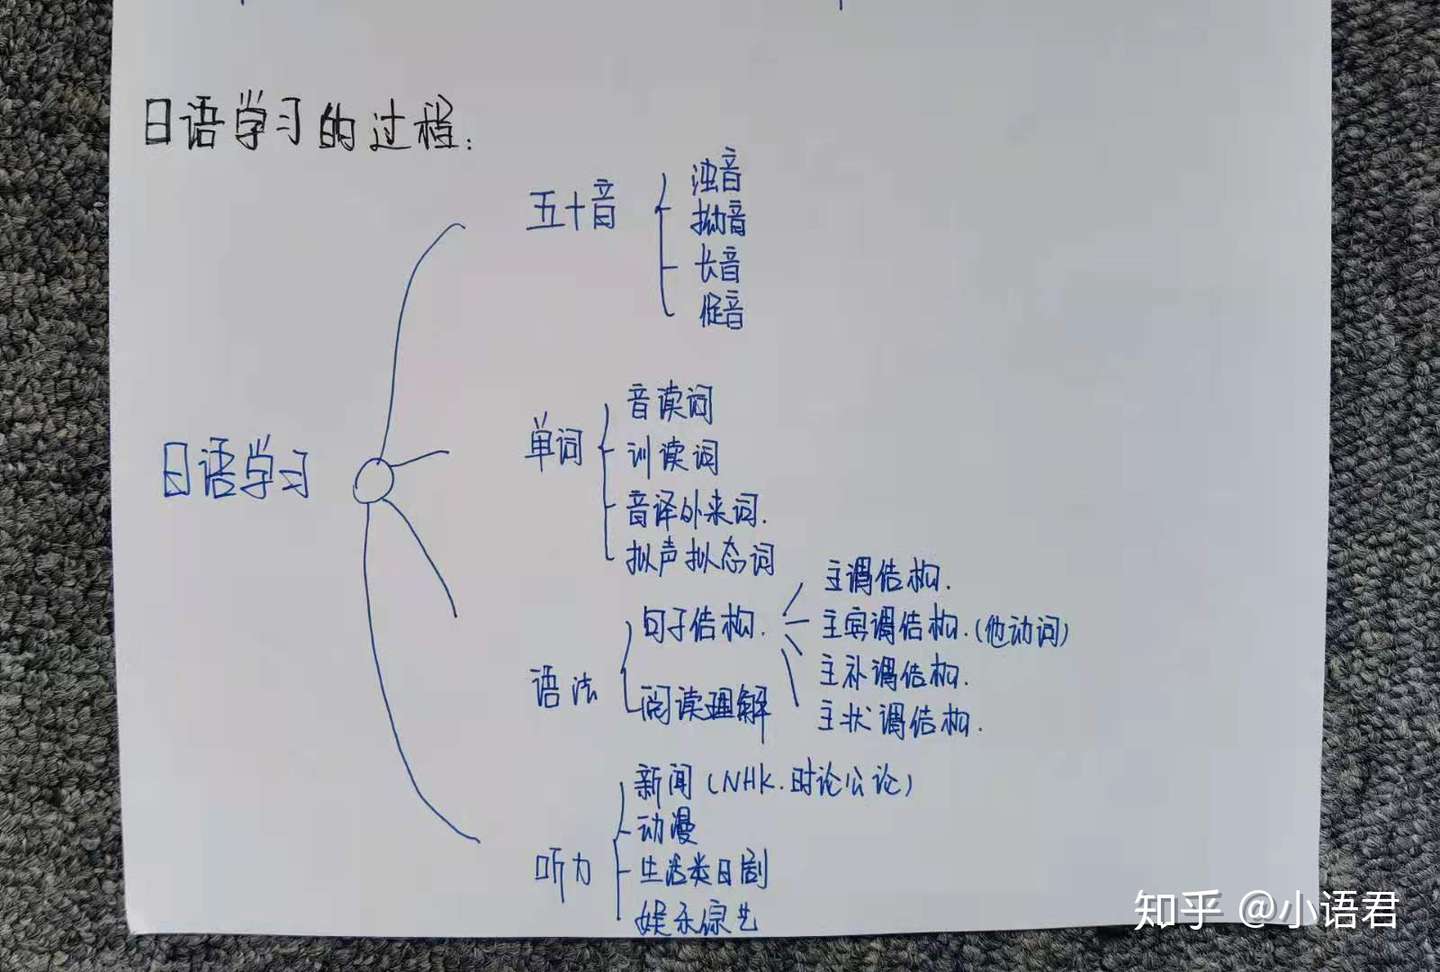 日语学习的过程:
日语学习
五十音
浊音
拗音
长音
促音
单词
音读词
训读词
音译外来词.
拟声拟态词
语法
句子结构.
主谓结构.
主宾谓结构.(他动词)
主补谓结构.
主状谓结构.
阅读理解
听力
新闻(NHK.时论公论)
动漫
生活类日剧
娱乐综艺
知乎 @小语君